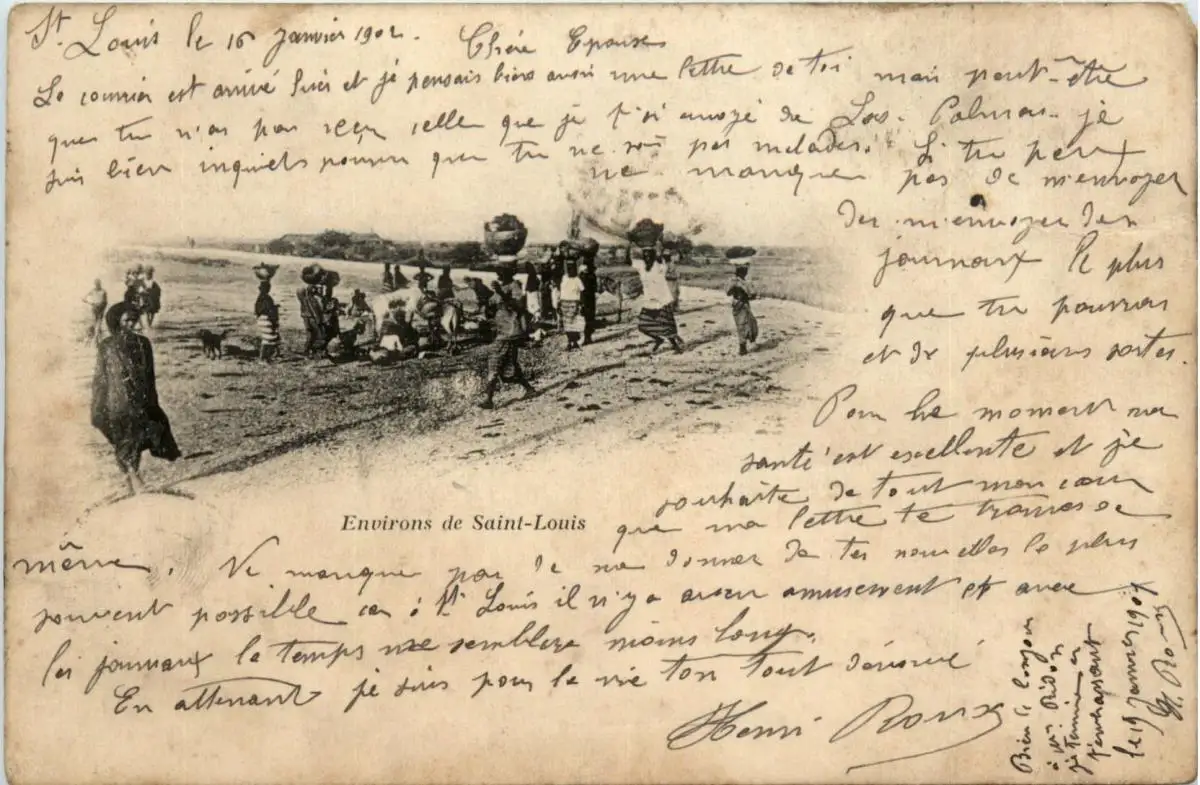 St. Louis le 16 janvier 1902. Chère Epouse
Le courrier est arrivé hier et je pensais bien avoir une lettre de toi mais peut-être
que tu n'as pas reçu celle que je t'ai envoyé de Las-Palmas. je
suis bien inquiet pourvu que tu ne sois pas malade. Si tu peux
ne manque pas de m'envoyer
des m'envoyer des
journaux le plus
que tu pourras
et de plusieurs sortes.
Pour le moment ma
santé est excellente et je
souhaite de tout mon cœur
que ma lettre te trouve de
même. Ne manque pas de me donner de tes nouvelles le plus
souvent possible car à St Louis il n'y a aucun amusement et avec
les journaux le temps me semblera moins long.
En attenant je suis pour la vie ton tout dévoué
Henri Roux
Environs de Saint-Louis
Bien le bonjour
à Mr.
je termine en
t'embrassant
le 19 janvier
H. Roux